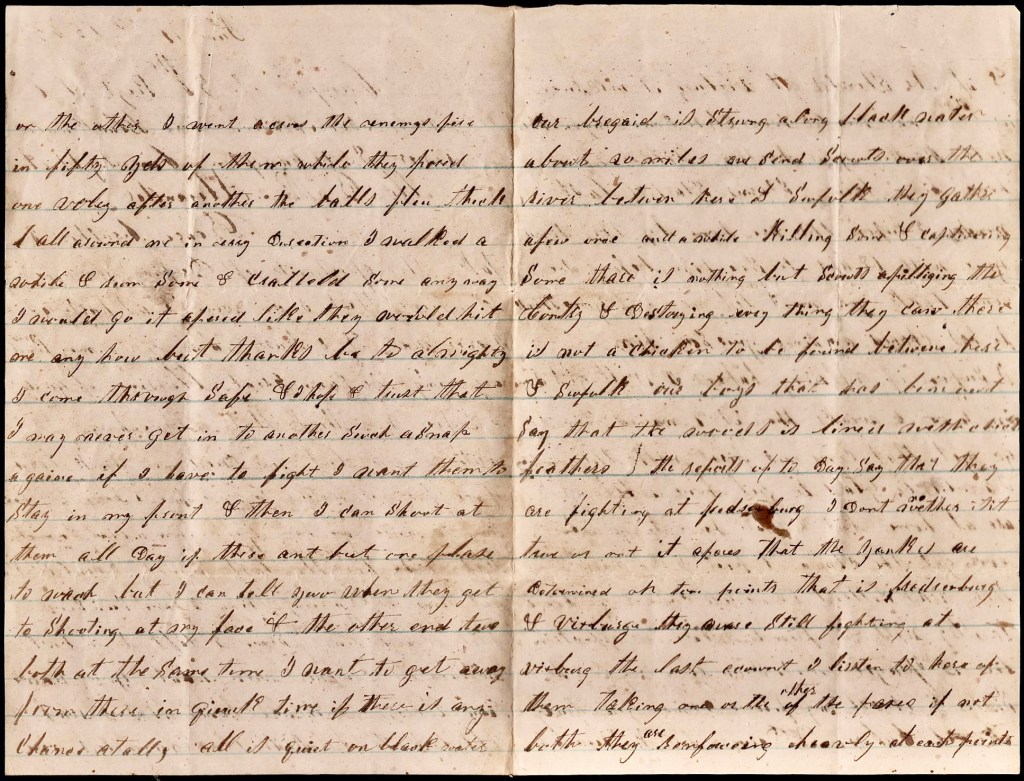 or the other I went acans the enemys fire
in fifty yds of them while they pored
one voley after another the balls flew thick
& all around me in evry Direction I walked a
while & run Some & Cralled Some any way
I would go it apered like they would hit
me any how but thanks be to almighty
I come through Safe & I hope & trust that
I may never get in to another Such a Snap
againe if I have to fight I want them to
Stay in my front & then I can Shoot at
them all Day if there ant but one plase
to wach but I can tell you when they get
to Shooting at my face & the other end two
both at the Same time I want to get away
from there in quick time if there is any
Chance atall, all is quiet on black water
our bregaid is Strung along black water
about 20 miles we Send Scouts over the
river between here & Sufolk they gather
a few once and a while Killing Some & capturing
Some thare is nothing but Scouts apilliging the
Contry & Destorying evry thing they can there
is not a chicken to be found betwene here
& Sufolk our boys that has bin
Say that the woods is lined with
feathers / the reports up to Day Say that they
are fighting at fredsenburg I Dont no wether tht
true or not it apares that the yankes are
determined on two points that is fredsenburg
& Vixburge they ware Still fighting at
vixburg the last acownt I lissten to here of
them taking one or the other of the places if not
both they are Bornfowing heavly at each points